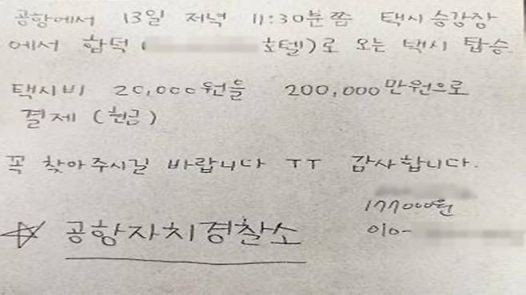 공항에서 13일 저녁 11:30분쯤 택시 승강장
에서 함덕 ( 호텔)로 오는 택시 탑승
택시비 20,000원을 200,000만원으로
결제 (현금)
꼭 찾아주시길 바랍니다 TT 감사합니다.
177000원
☆ 공항자치경찰소
010-